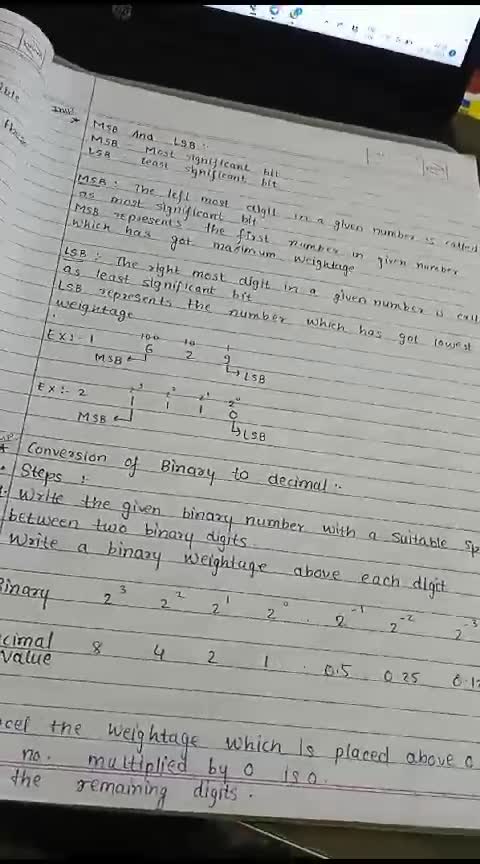 Imp
* MSB And LSB :
MSB - Most significant bit
LSB - least significant bit
MSB : The left most digit in a given number is called
as most significant bit
MSB represents the first number in given number
which has got maximum weightage
LSB : The right most digit in a given number is call
as least significant bit
LSB represents the number which has got lowest
weightage
Ex :- 1 100 10 1
6 2 9
MSB LSB
Ex :- 2 2³ 2² 2¹ 2⁰
1 1 1 0
MSB LSB
* Conversion of Binary to decimal :-
Steps :
Write the given binary number with a suitable sp
between two binary digits.
Write a binary weightage above each digit
Binary 2³ 2² 2¹ 2⁰ . 2⁻¹ 2⁻² 2⁻³
cimal 8 4 2 1 . 0.5 0.25 0.12
value
cel the weightage which is placed above 0
no. multiplied by 0 is 0.
the remaining digits.